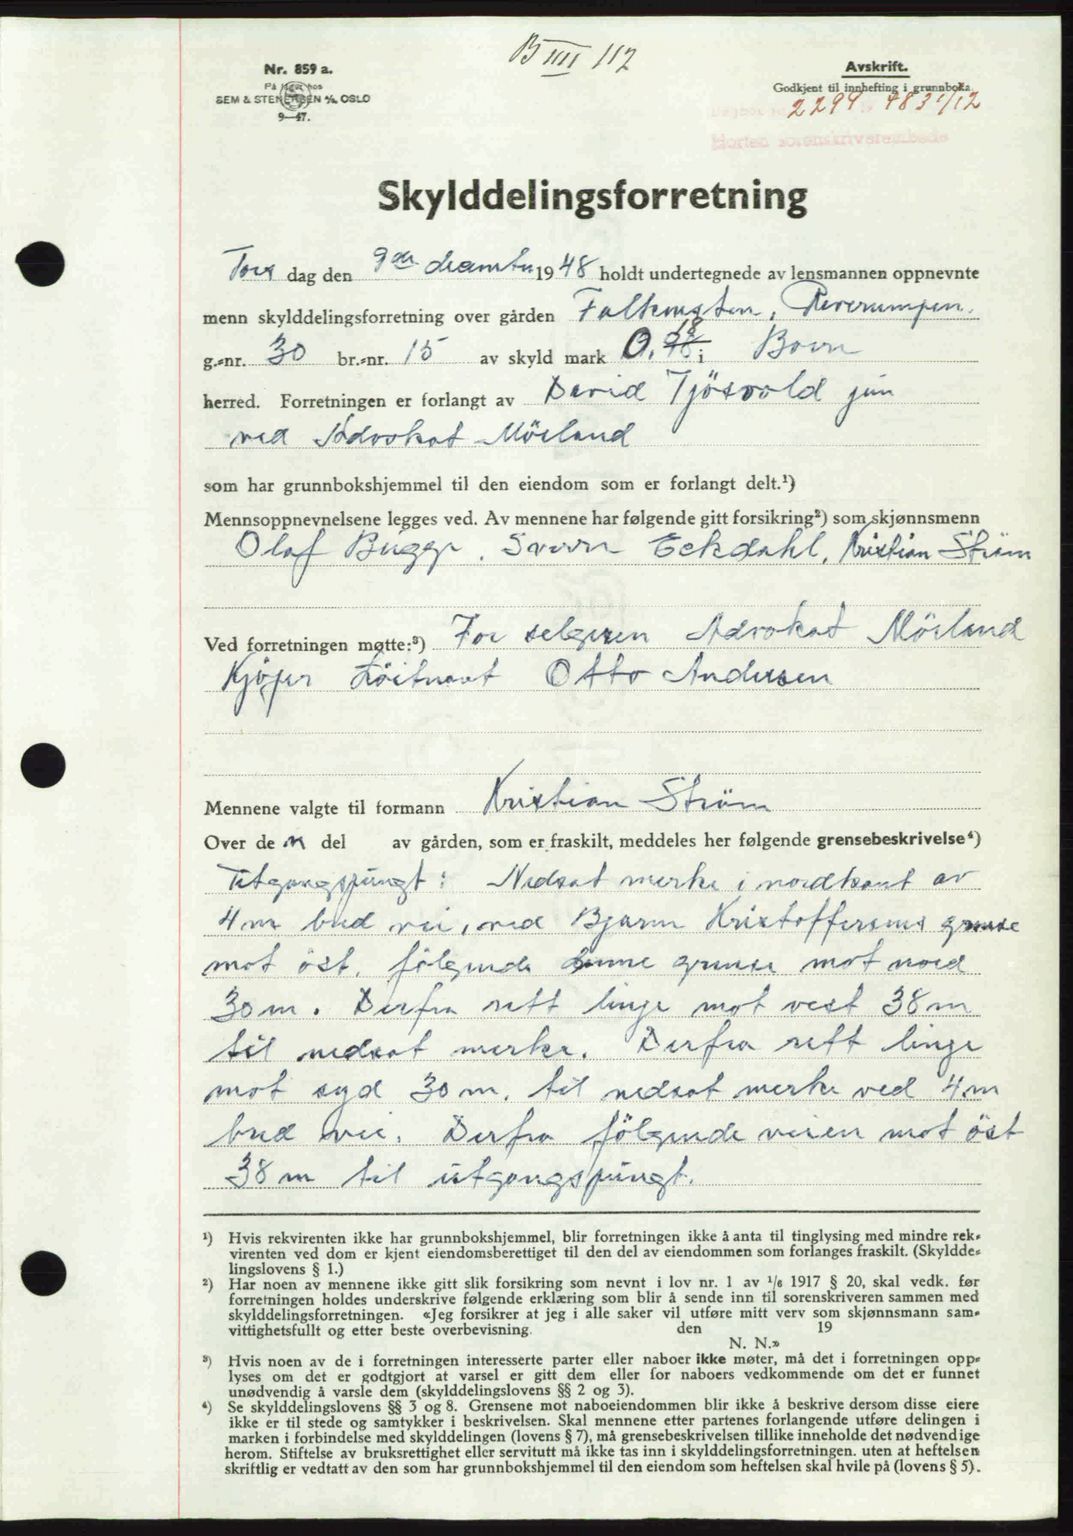 B IIII 112
Nr. 859 a.
På lager hos
SEM & STENERSEN A/S OSLO
9—47.
Avskrift.
Godkjent til innhefting i grunnboka.
2299 48 31/12
Horten sorenskriverembede
Skylddelingsforretning
Tors dag den 9de desember 1948 holdt undertegnede av lensmannen oppnevnte
menn skylddelingsforretning over gården Falkensten, Rverumpen.
g.-nr. 30 br.-nr. 15 av skyld mark 0.18 i Borre
herred. Forretningen er forlangt av David Tjösvold jun
ved Advokat Mörland
som har grunnbokshjemmel til den eiendom som er forlangt delt.¹)
Mennsoppnevnelsene legges ved. Av mennene har følgende gitt forsikring²) som skjønnsmenn
Olaf Bugge, Sverre Eckdahl, Kristian Ström
Ved forretningen møtte:³) For selgeren Advokat Mörland
Kjöper Löitnant Otto Andersen
Mennene valgte til formann Kristian Ström
Over de n del av gården, som er fraskilt, meddeles her følgende grensebeskrivelse⁴)
Utgangspungt: Nedsat merke i nordkant av
4 m bred vei, ved Bjarne Kristoffersens grense
mot öst, fölgende denne grense mot nord
30 m. Derfra rett linje mot vest 38 m
til nedsat merke. Derfra rett linje
mot syd 30 m. til nedsat merke ved 4 m
bred vei. Derfra fölgende veien mot öst
38 m til utgangspungt.
¹) Hvis rekvirenten ikke har grunnbokshjemmel, blir forretningen ikke å anta til tinglysing med mindre rek-
virenten ved dom er kjent eiendomsberettiget til den del av eiendommen som forlanges fraskilt. (Skyldde-
lingslovens § 1.)
²) Har noen av mennene ikke gitt slik forsikring som nevnt i lov nr. 1 av 1/6 1917 § 20, skal vedk. før
forretningen holdes underskrive følgende erklæring som blir å sende inn til sorenskriveren sammen med
skylddelingsforretningen. «Jeg forsikrer at jeg i alle saker vil utføre mitt verv som skjønnsmann sam-
vittighetsfullt og etter beste overbevisning. den 19
N. N.»
³) Hvis noen av de i forretningen interesserte parter eller naboer ikke møter, må det i forretningen opp-
lyses om det er godtgjort at varsel er gitt dem eller for naboers vedkommende om det er funnet
unødvendig å varsle dem (skylddelingslovens §§ 2 og 3).
⁴) Se skylddelingslovens §§ 3 og 8. Grensene mot naboeiendommen blir ikke å beskrive dersom disse eiere
ikke er til stede og samtykker i beskrivelsen. Skal mennene etter partenes forlangende utføre delingen i
marken i forbindelse med skylddelingen (lovens § 7), må grensebeskrivelsen tillike inneholde det nødvendige
herom. Stiftelse av bruksrettighet eller servitutt må ikke tas inn i skylddelingsforretningen. uten at heftelsen
skriftlig er vedtatt av den som har grunnbokshjemmel til den eiendom som heftelsen skal hvile på (lovens § 5).